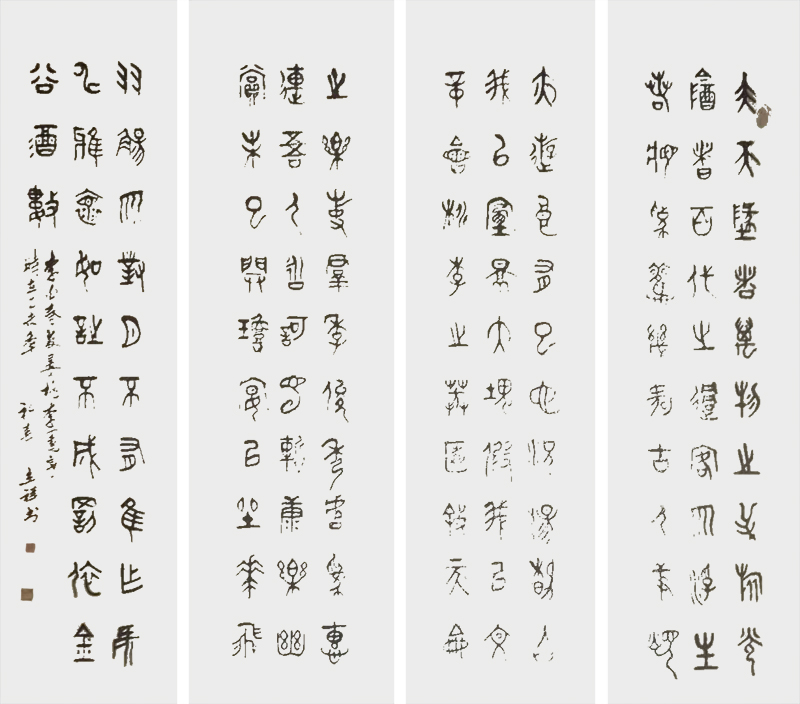 夫天地者萬物之逆旅光
陰者百代之過客而浮生
若夢為歡幾何古人秉燭
夜遊良有以也況陽春召
我以煙景大塊假我以文
章會桃李之芳園序天倫
之樂事羣季俊秀皆為惠
連吾人詠歌獨慚康樂幽
賞未已開瓊筵以坐花飛
羽觴而醉月不有佳作何
伸雅懷如詩不成罰依金
谷酒數
李白春夜宴於桃李園序
時在乙未年初春